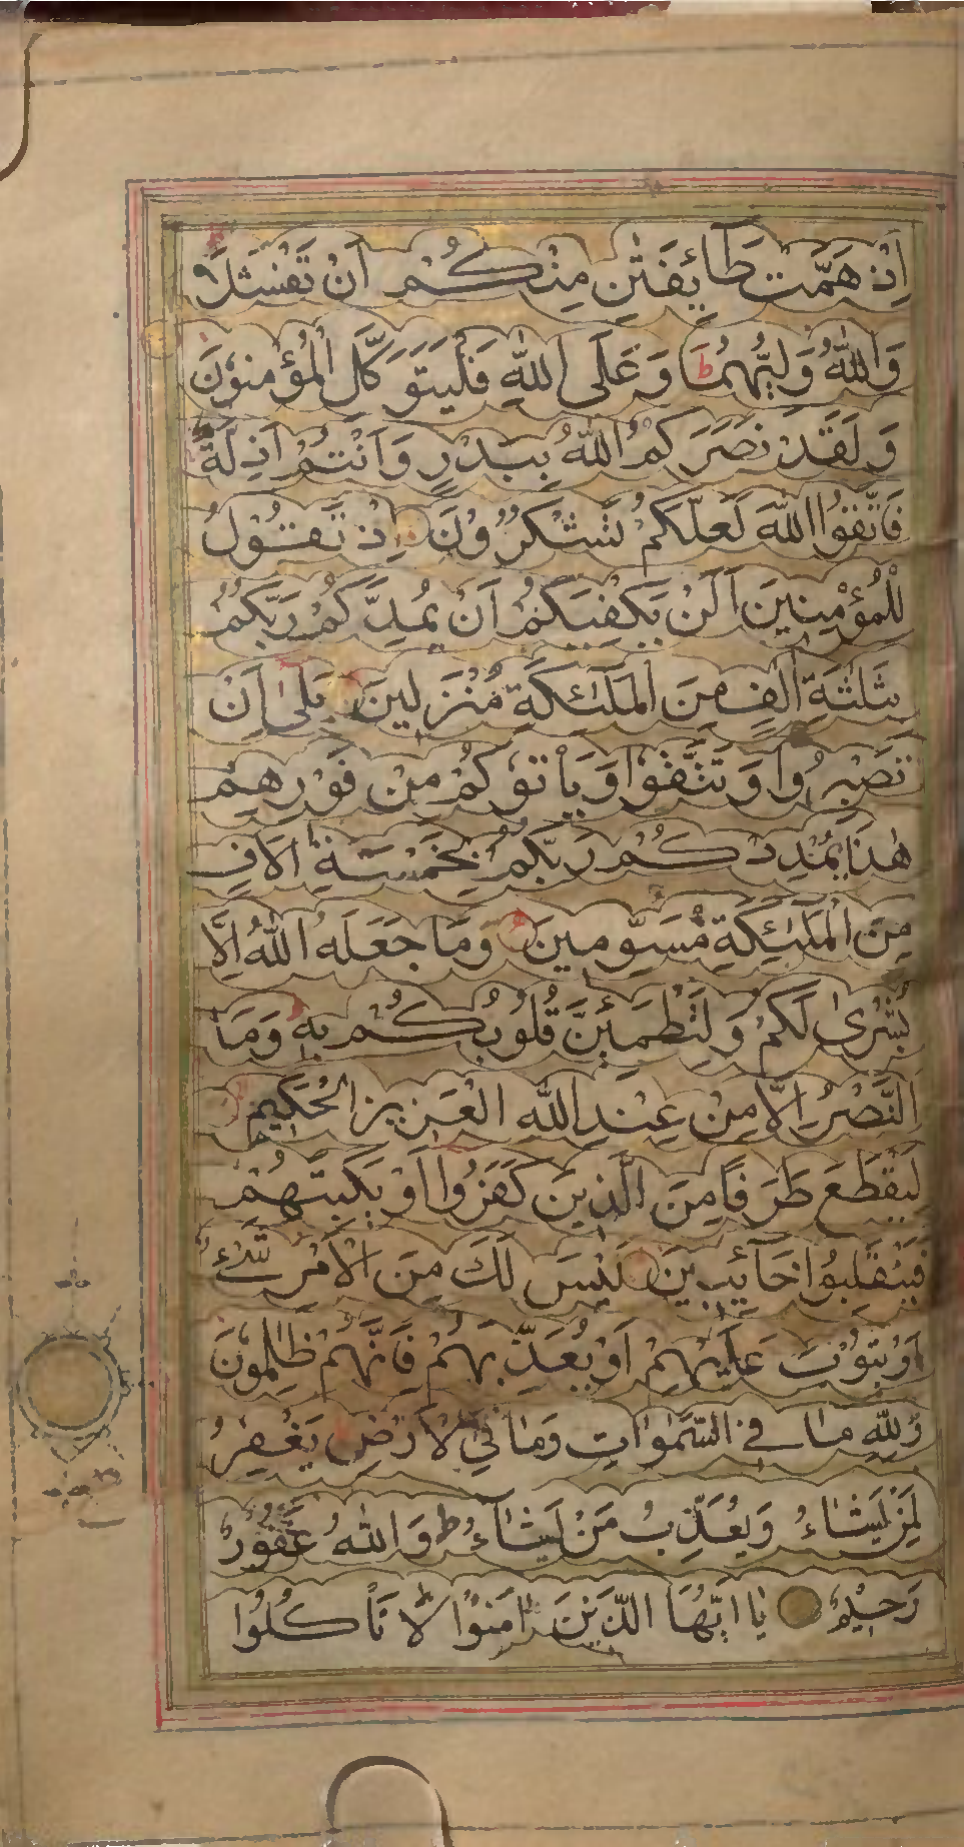 اِذْ هَمَّتْ طَآئِفَتٰنِ مِنْكُمْ اَنْ تَفْشَلَا
وَاللّٰهُ وَلِيُّهُمَا ط وَعَلَى اللّٰهِ فَلْيَتَوَكَّلِ الْمُؤْمِنُوْنَ
وَلَقَدْ نَصَرَكُمُ اللّٰهُ بِبَدْرٍ وَاَنْتُمْ اَذِلَّةٌ
فَاتَّقُوا اللّٰهَ لَعَلَّكُمْ تَشْكُرُوْنَ اِذْ تَقُوْلُ
لِلْمُؤْمِنِيْنَ اَلَنْ يَكْفِيَكُمْ اَنْ يُمِدَّكُمْ رَبُّكُمْ
بِثَلٰثَةِ اٰلٰفٍ مِنَ الْمَلٰئِكَةِ مُنْزَلِيْنَ بَلٰى اِنْ
تَصْبِرُوْا وَتَتَّقُوْا وَيَأْتُوْكُمْ مِنْ فَوْرِهِمْ
هٰذَا يُمْدِدْكُمْ رَبُّكُمْ بِخَمْسَةِ اٰلَافٍ
مِنَ الْمَلٰئِكَةِ مُسَوِّمِيْنَ وَمَا جَعَلَهُ اللّٰهُ اِلَّا
بُشْرٰى لَكُمْ وَلِتَطْمَئِنَّ قُلُوْبُكُمْ بِهِ وَمَا
النَّصْرُ اِلَّا مِنْ عِنْدِ اللّٰهِ الْعَزِيْزِ الْحَكِيْمِ
لِيَقْطَعَ طَرَفًا مِنَ الَّذِيْنَ كَفَرُوْا اَوْ يَكْبِتَهُمْ
فَيَنْقَلِبُوْا خَآئِبِيْنَ لَيْسَ لَكَ مِنَ الْاَمْرِ شَيْءٌ
اَوْ يَتُوْبَ عَلَيْهِمْ اَوْ يُعَذِّبَهُمْ فَاِنَّهُمْ ظَالِمُوْنَ
وَلِلّٰهِ مَا فِي السَّمٰوَاتِ وَمَا فِي الْاَرْضِ يَغْفِرُ
لِمَنْ يَشَاءُ وَيُعَذِّبُ مَنْ يَشَآءُ ط وَاللّٰهُ غَفُوْرٌ
رَحِيْمٌ يٰا اَيُّهَا الَّذِيْنَ اٰمَنُوْا لَا تَأْكُلُوْا